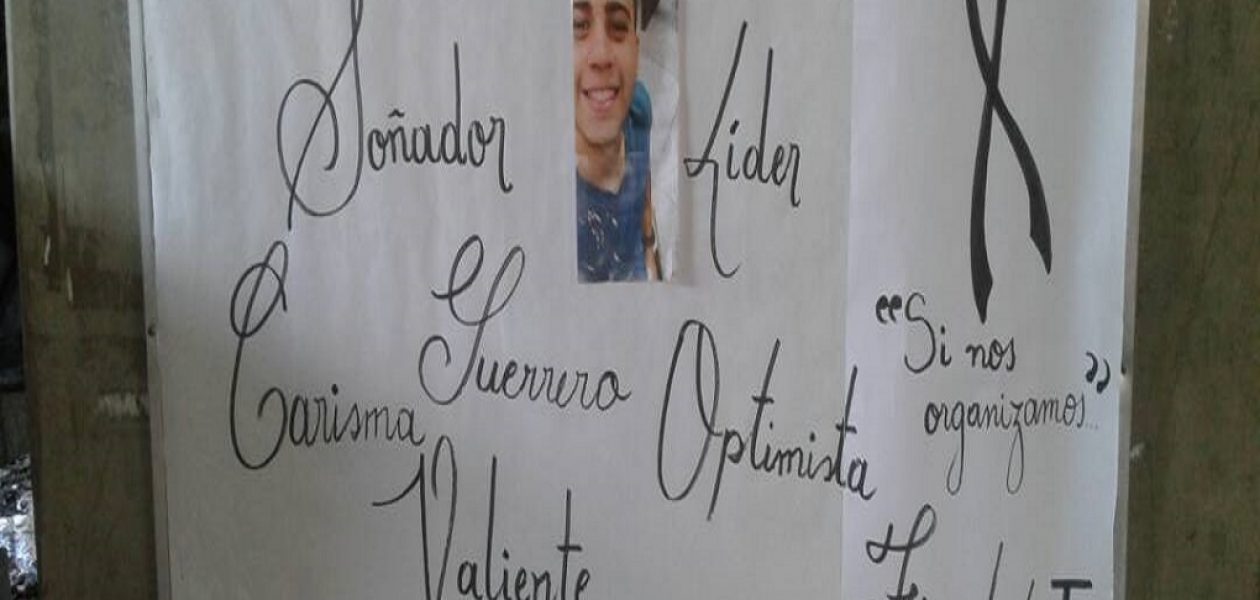 Soñador
Líder
Carisma
Guerrero
Optimista
Valiente
"Si nos
organizamos..."